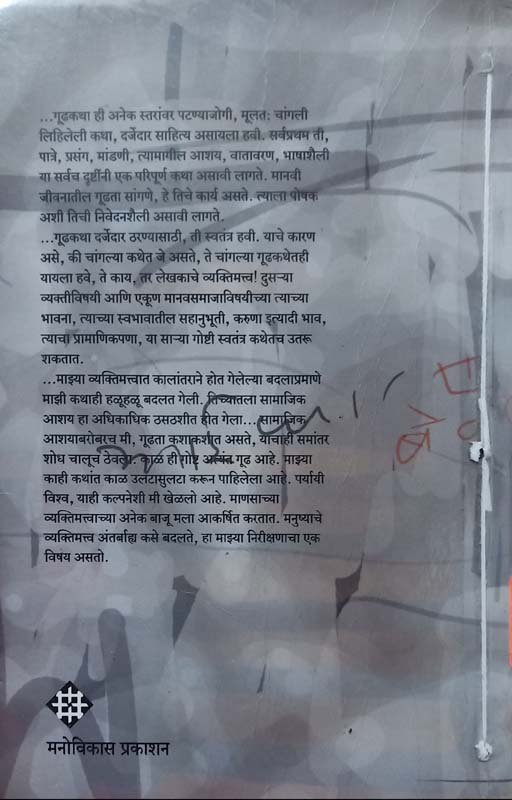 ...गूढकथा ही अनेक स्तरांवर पटण्याजोगी, मूलतः चांगली
लिहिलेली कथा, दर्जेदार साहित्य असायला हवी. सर्वप्रथम ती,
पात्रे, प्रसंग, मांडणी, त्यामागील आशय, वातावरण, भाषाशैली
या सर्वच दृष्टींनी एक परिपूर्ण कथा असावी लागते. मानवी
जीवनातील गूढता सांगणे, हे तिचे कार्य असते. त्याला पोषक
अशी तिची निवेदनशैली असावी लागते.
...गूढकथा दर्जेदार ठरण्यासाठी, ती स्वतंत्र हवी. याचे कारण
असे, की चांगल्या कथेत जे असते, ते चांगल्या गूढकथेतही
यायला हवे, ते काय, तर लेखकाचे व्यक्तिमत्त्व! दुसऱ्या
व्यक्तीविषयी आणि एकूण मानवसमाजाविषयीच्या त्याच्या
भावना, त्याच्या स्वभावातील सहानुभूती, करुणा इत्यादी भाव,
त्याचा प्रामाणिकपणा, या साऱ्या गोष्टी स्वतंत्र कथेतच उतरू
शकतात.
...माझ्या व्यक्तिमत्त्वात कालांतराने होत गेलेल्या बदलाप्रमाणे
माझी कथाही हळूहळू बदलत गेली. तिच्यातला सामाजिक
आशय हा अधिकाधिक ठसठशीत होत गेला... सामाजिक
आशयाबरोबरच मी, गूढता कशाकशात असते, याचाही समांतर
शोध चालूच ठेवला. काळ ही गोष्ट अत्यंत गूढ आहे. माझ्या
काही कथांत काळ उलटासुलटा करून पाहिलेला आहे. पर्यायी
विश्व, याही कल्पनेशी मी खेळलो आहे. माणसाच्या
व्यक्तिमत्त्वाच्या अनेक बाजू मला आकर्षित करतात. मनुष्याचे
व्यक्तिमत्त्व अंतर्बाह्य कसे बदलते, हा माझ्या निरीक्षणाचा एक
विषय असतो.
मनोविकास प्रकाशन